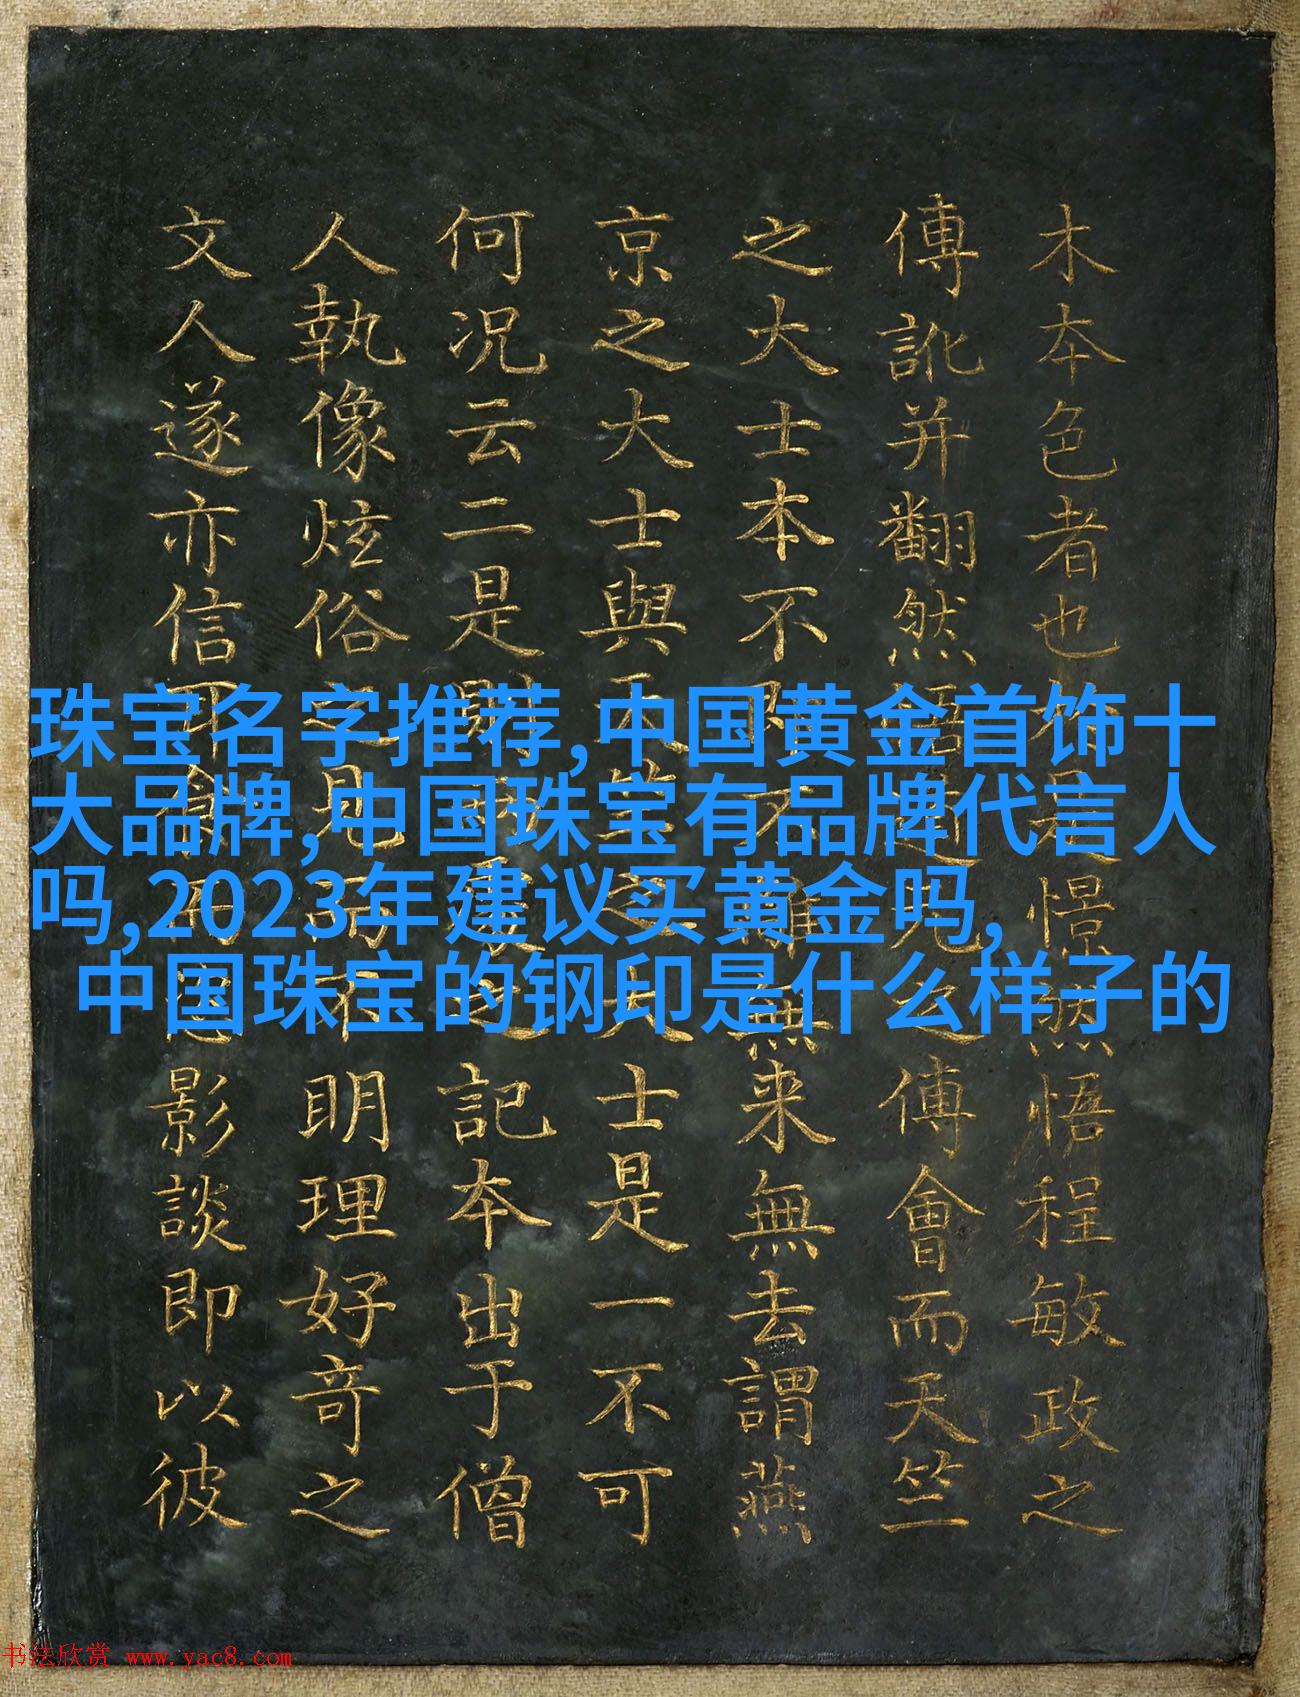 木夲色者也憬悟程敏政之
傅訛并翻然傅會而天竺
之大士本不無来無去謂燕
京之大士與天竺之大士是一不可
何况云二是則記夲出于僧
人執像炫俗之見而不明理好奇之
文人遂亦信影談即以彼
珠宝名字推荐,中国黄金首饰十
大品牌,中国珠宝有品牌代言人
吗,2023年建议买黄金吗,
中国珠宝的钢印是什么样子的
书法欣赏 www.yac8.com